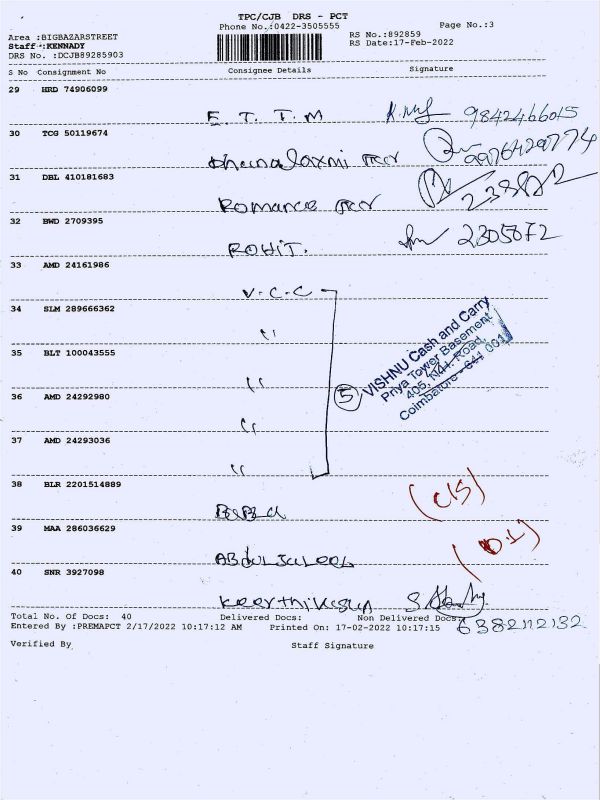 TPC/CJB DRS - PCT
Phone No.:0422-3505555
Page No.:3
Area :BIGBAZARSTREET
RS No.:892859
Staff :KENNADY
RS Date:17-Feb-2022
DRS No. :DCJB89285903
S No Consignment No Consignee Details Signature
29 HRD 74906099
E. T. T. M 9842466015
30 TCG 50119674
Dhanalaxmi 9976429774
31 DBL 410181683
Romance
32 BWD 2709395
ROHIT. 2305872
33 AMD 24161986
V-C-C
34 SLM 289666362
"
35 BLT 100043555
"
5
VISHNU Cash and Carry
Priya Tower Basement
405, N.H. Road,
Coimbatore - 641 001
36 AMD 24292980
"
37 AMD 24293036
"
38 BLR 2201514889
(C/S)
39 MAA 286036629
Abdul Jaleel
40 SNR 3927098
Keerthikesun
Total No. Of Docs: 40 Delivered Docs: Non Delivered Docs:
6382112132
Entered By :PREMAPCT 2/17/2022 10:17:12 AM Printed On: 17-02-2022 10:17:15
Verified By Staff Signature